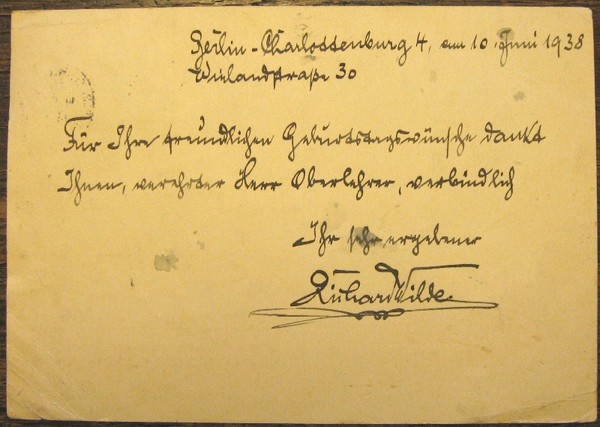 Berlin-Charlottenburg 4, am 10. Juni 1938
Wielandstraße 30
Für Ihre freundlichen Geburtstagswünsche dankt
Ihnen, verehrter Herr Oberlehrer, verbindlich
Ihr sehr ergebener
Richard Wilde